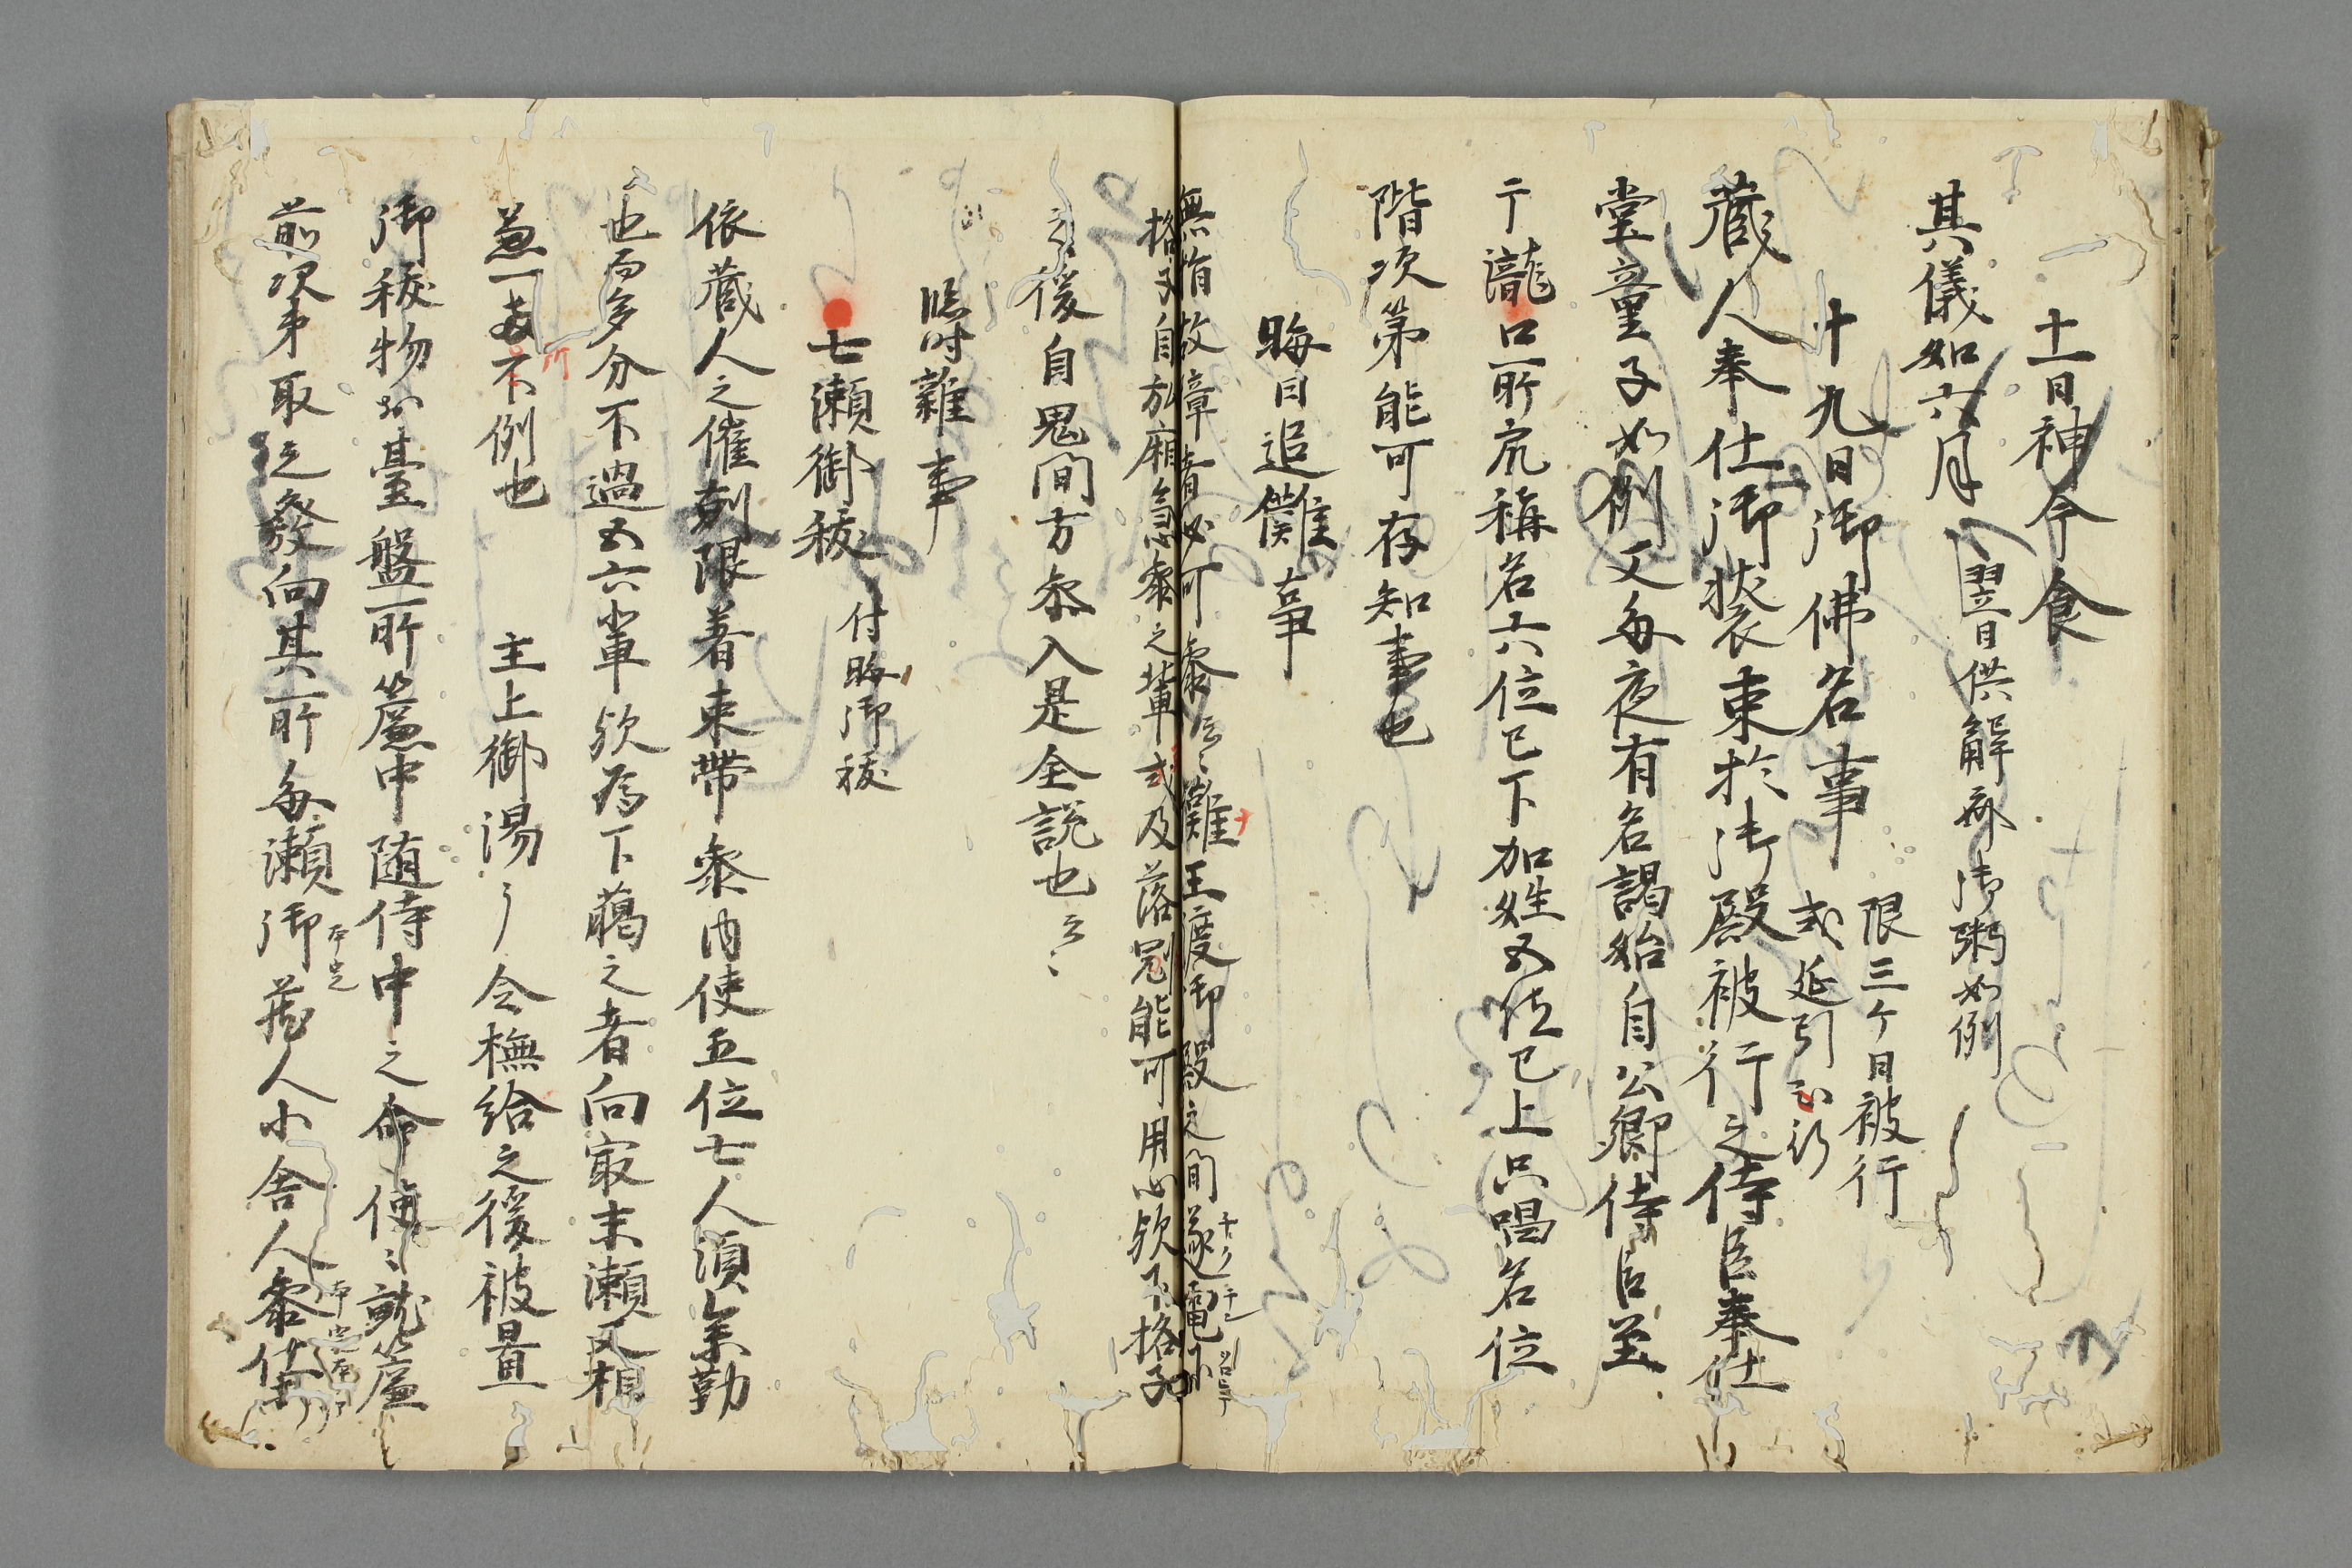 十一日神今食
其儀如六月 翌日供解斎御粥如例
十九日御佛名事 限三ケ日被行
或延引
蔵人奉仕御装束於御殿被行之侍臣奉仕
堂童子如例又毎夜有名謁始自公卿侍臣至
于瀧口所衆稱名六位已下加姓五位已上只唱名位
階次第能可存知事也
晦日追儺事
無指故障者必可参云々儺王度御殿之間逐電
格子自放廂急参之輩或及落冠能可用心歟下格子
之後自鬼間方参入是全説也云々
臨時雑事
七瀬御祓 付晦御祓
依蔵人之催剋限着束帯参内使五位七人須参勤
也而多分不過五六輩歟為下臈之者向寂末瀬又相
兼一両所不例也 主上御湯々令撫給之後被置
御祓物於臺盤所簾中随侍中之命使々就簾
前次第取之發向其所毎瀬御蔵人小舎人参